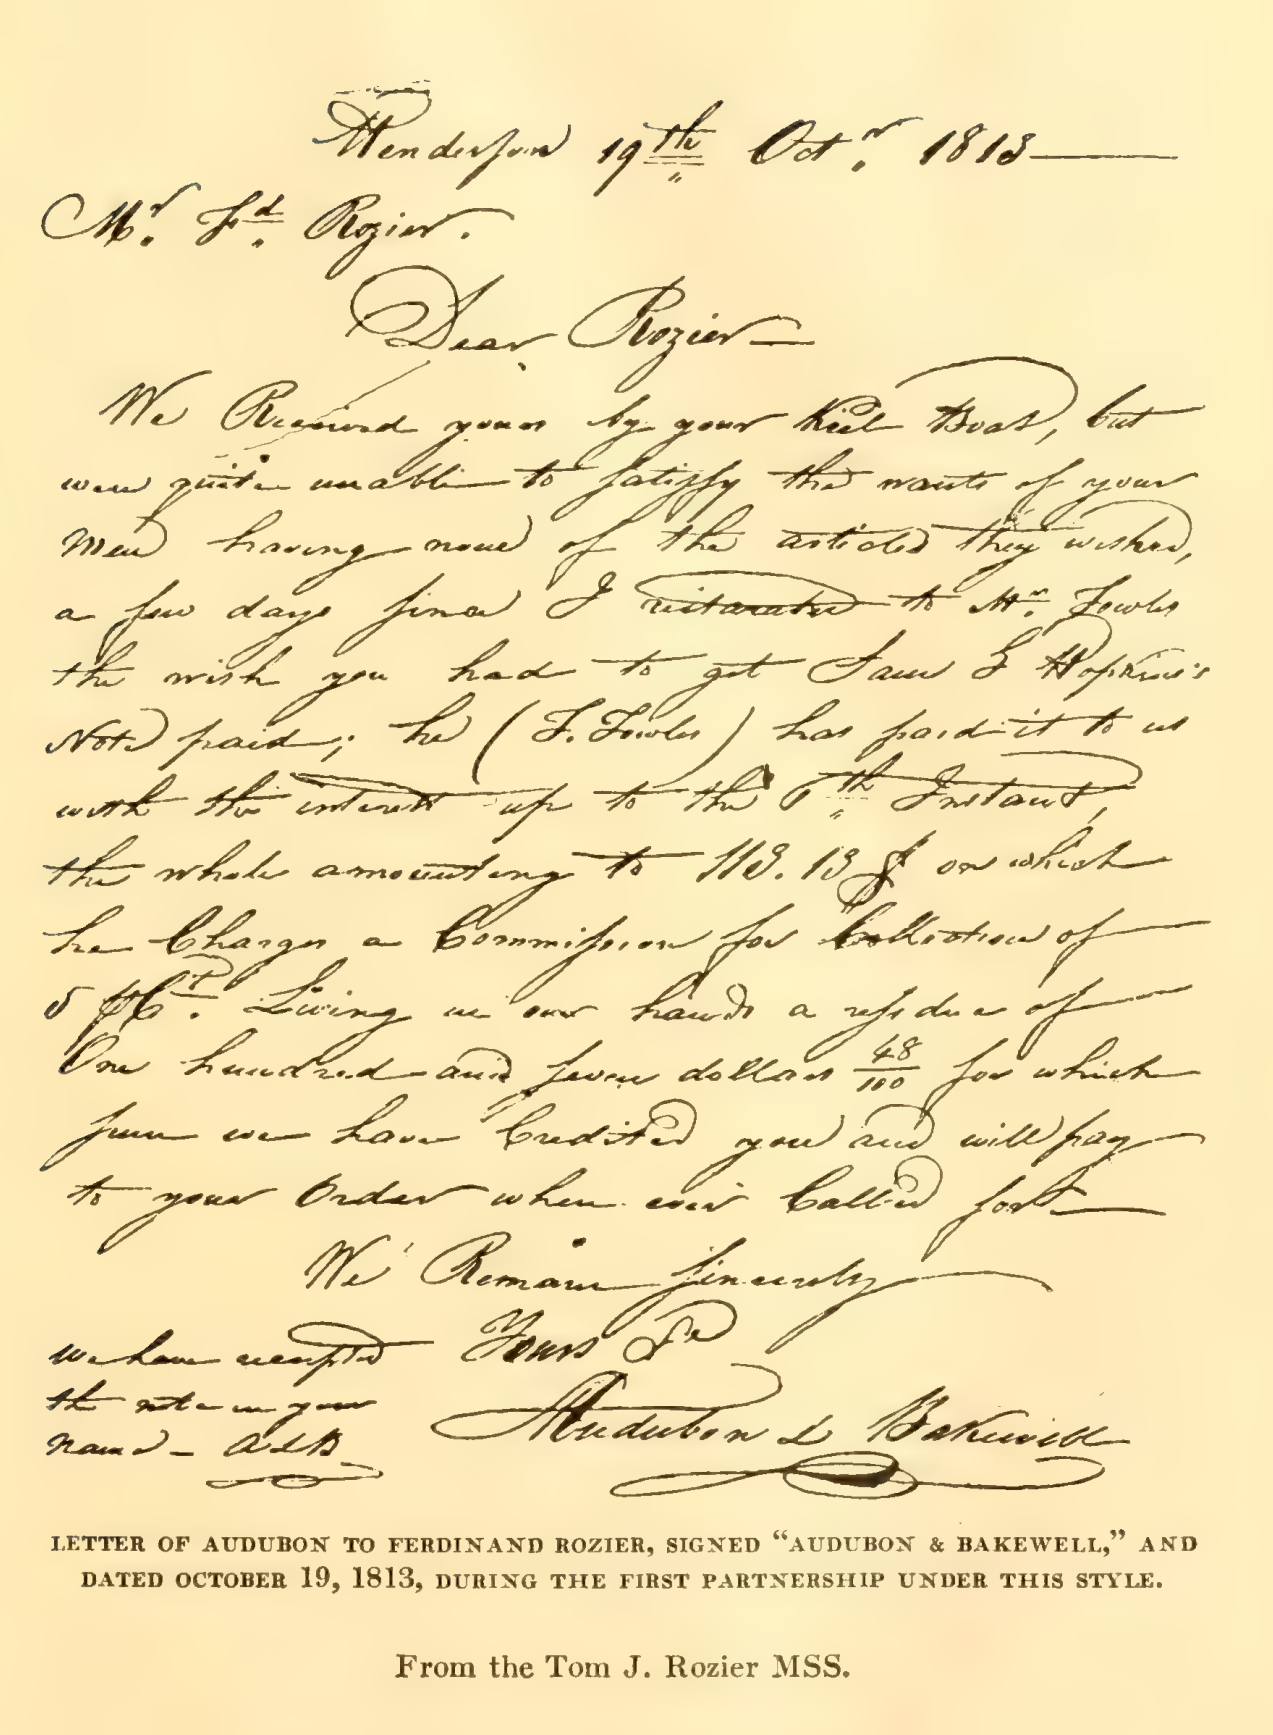 Henderson 19th Octr. 1813
Mr. Fd. Rozier.
Dear Rozier
We Received yours by your Keel Boat, but
were quite unable to satisfy the wants of your
Men having none of the articles they wished,
a few days since I to Mr. Fowler
the wish you had to get Sam G Hopkins's
Note paid; he (F. Fowler) has paid it to us
with the interest up to the Instant,
the whole amounting to 113.13 $ on which
he Charges a Commission for Collection of
5 Pr Ct. Living in our hands a residue of
One hundred and seven dollars 48/100 for which
sum we have Credited you and will pay
to your Order when ever Called for
We Remain Sincerely
Yours
we have receipted
the note in your
name – A & B.
Audubon & Bakewell
LETTER OF AUDUBON TO FERDINAND ROZIER, SIGNED “AUDUBON & BAKEWELL,” AND
DATED OCTOBER 19, 1813, DURING THE FIRST PARTNERSHIP UNDER THIS STYLE.
From the Tom J. Rozier MSS.